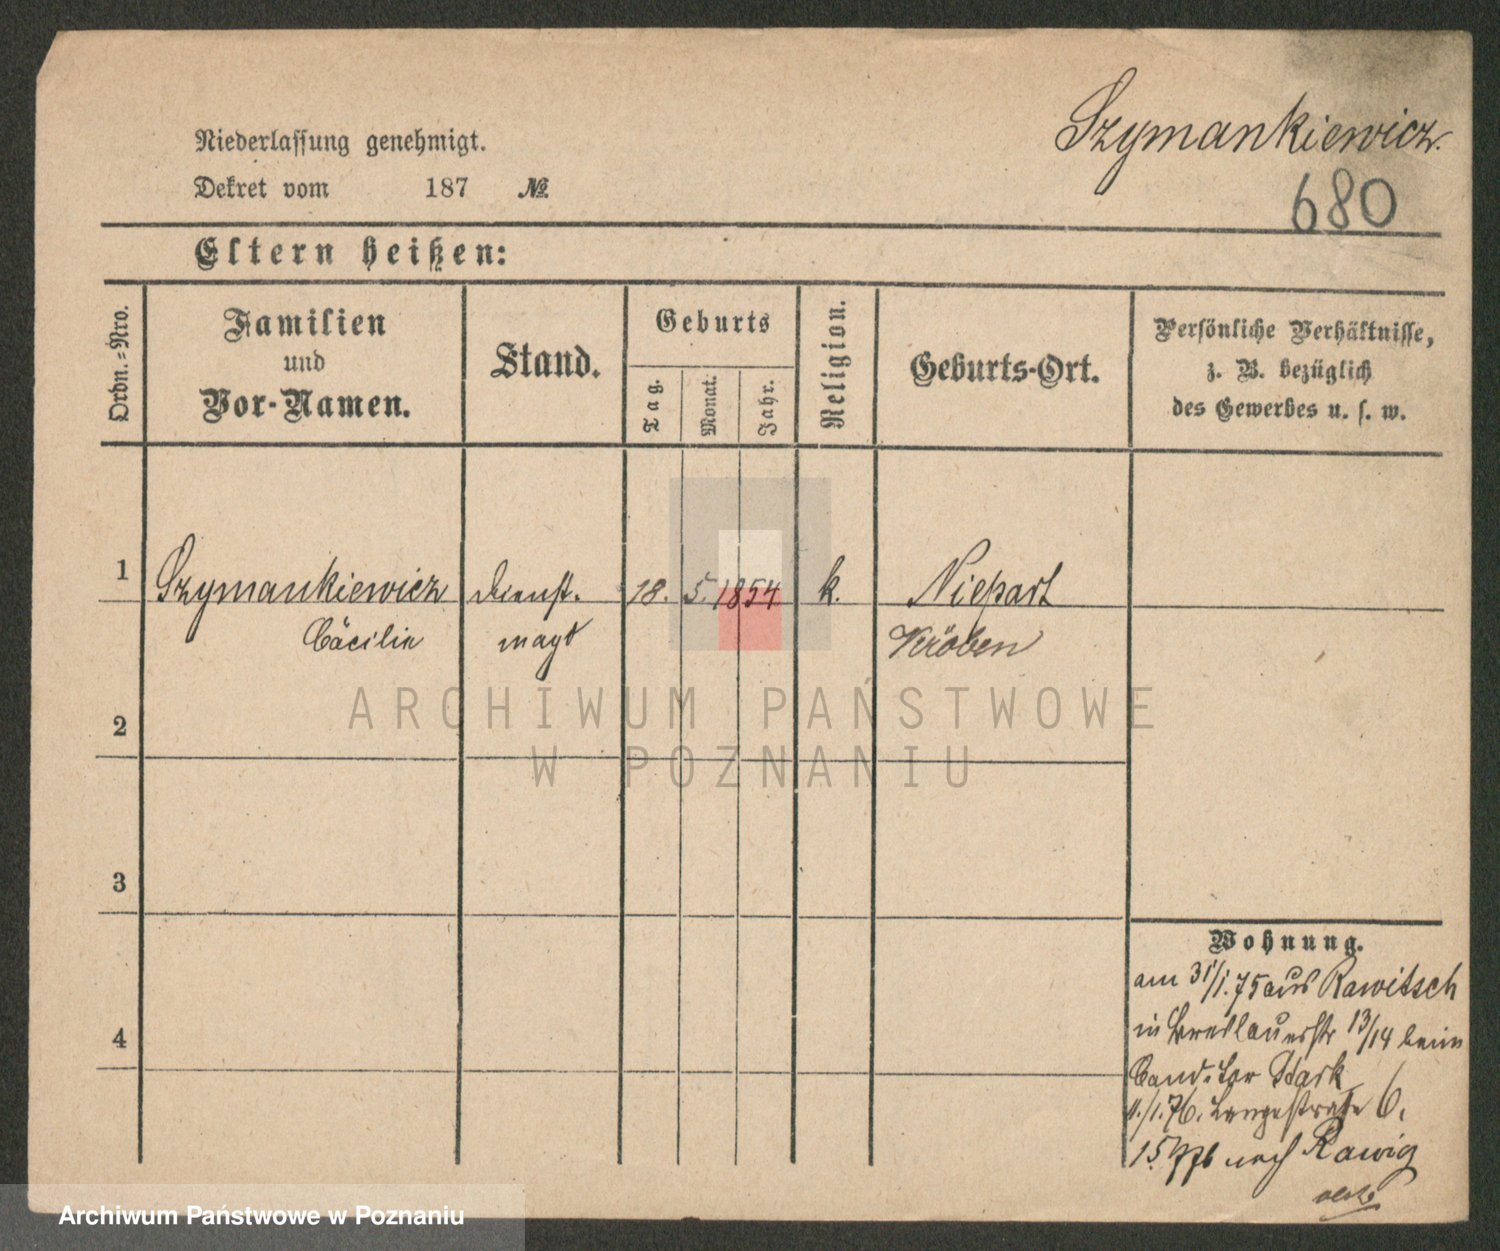 Szymankiewicz.
680
Niederlassung genehmigt.
Dekret vom 187 №
Eltern heißen:
Ordn.=Nro.
Familien
und
Vor-Namen.
Stand.
Geburts
Tag.
Monat.
Jahr.
Religion.
Geburts-Ort.
Persönliche Verhältnisse,
z. B. bezüglich
des Gewerbes u. s. w.
1 Szymankiewicz Dienst- 18. 5. 1854 k. Niepart
Cäcilie magd Kröben
2
3
4
Wohnung.
am 31/1.75 aus Rawitsch
in Breslauerstr 13/14 beim
Conditor
1./1.76. Langestraße 6.
nach
ARCHIWUM PAŃSTWOWE
W POZNANIU
Archiwum Państwowe w Poznaniu